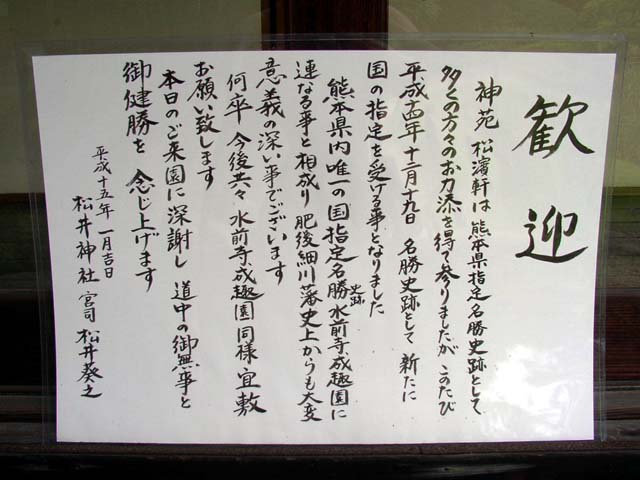 歓迎
神苑 松濱軒は 熊本県指定名勝史跡として
多くの方々のお力添を得て参りましたが このたび
平成十四年 十二月十九日 名勝史跡として 新たに
国の指定を受ける事となりました
熊本県内唯一の国指定名勝史跡水前寺成趣園に
連なる事と相成り 肥後細川藩史上からも大変
意義の深い事でございます
何卒 今後共々 水前寺成趣園同様 宜敷
お願い致します
本日のご来園に深謝し 道中の御無事と
御健勝を 念じ上げます
平成十五年 一月吉日
松井神社 宮司 松井葵之